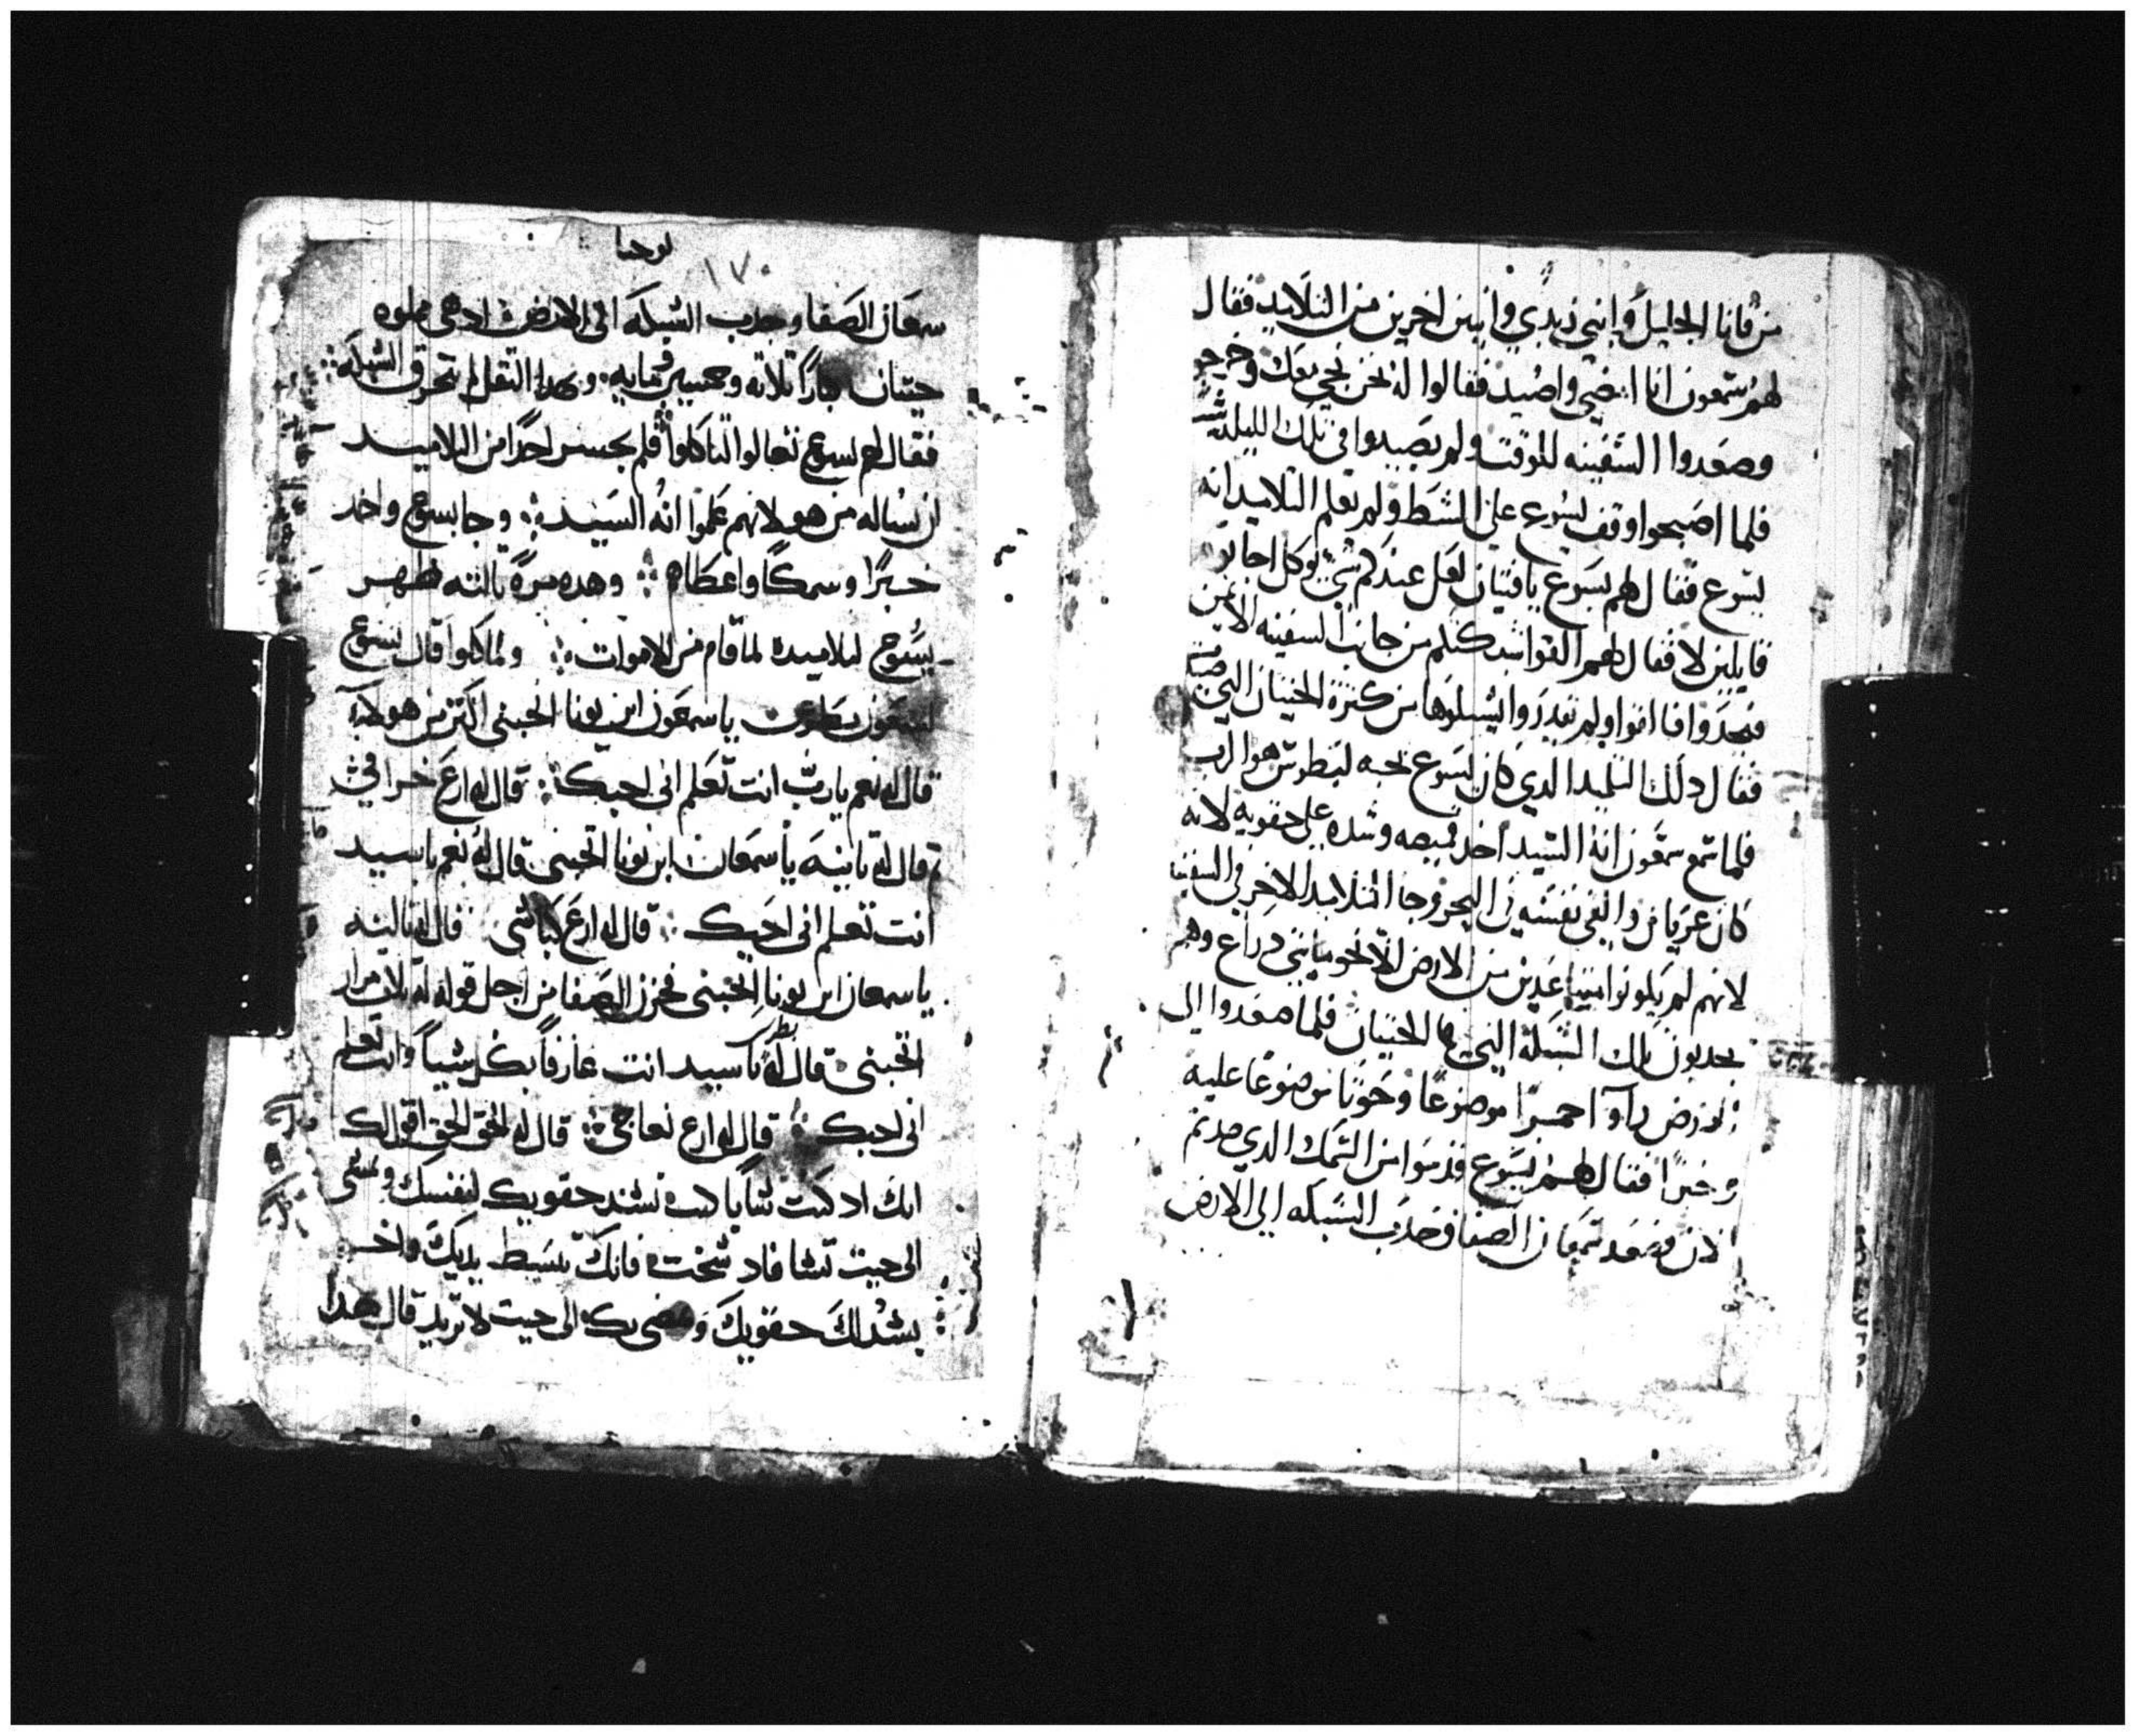 من قانا الجليل وابني زبدي واثنين اخرين من التلاميد فقال
لهم سمعون انا امضي واصيد فقالوا له نحن نجي معك وخرجو
وصعدوا السفينه للوقت ولم يصيدوا في تلك الليله شي
فلما اصبحوا وقف يسوع على الشط ولم تعلم التلاميد انه
يسوع فقال لهم يسوع يافتيان لعل عندكم شي يوكل اجابو
قايلين لا فقال لهم القوا شبكتكم من جانب السفينه الايمن
فتجدوا فالقوا ولم تقدروا يشيلوها من كثرة الحيتان التي
فقال دلك التلميد الدي كان يسوع يحبه لبطرس هوا الرب
فلما سمع سمعون انه السيد اخد قميصه وشده على حقويه لانه
كان عريان والقى نفسه في البحر وجا التلاميد الاخر في السفينه
لانهم لم يكونوا متباعدين من الارض الا نحو مايتي دراع وهم
يجدبون تلك الشبكة التي الحيتان فلما صعدوا الى
الارض رآوا جمرًا موضوعًا وحوتا موضوعًا عليه
وخبزًا فقال لهم يسوع قدموا من السمك الدي صدتم
الان فصعد سمعان الصفا وجدب الشبكه الى الارض
يوحنا
١٧٠
سمعان الصفا وجدب الشبكه الى الارض ادهى مملوه
حيتان كبارًا تلاته وخمسين ومايه وبهدا التقل لم تتخرق الشبكه
فقال لهم يسوع تعالوا لتاكلوا فلم يجسر احدًا من التلاميد
ان يساله من هو لانهم علموا انه السيد وجا يسوع واخد
خبزًا وسمكًا واعطاهم وهده مرة تالته ظهر
يسوع لتلاميده لما قام من الاموات ولما اكلوا قال يسوع
لسمعون بطرس ياسمعون ابن يونا اتحبني اكتر من هولاء
قال له نعم يارب انت تعلم اني احبك قال له ارع خرافي
قال له تانيه ياسمعان ابن يونا اتحبني قال له نعم ياسيد
انت تعلم اني احبك قال له ارع كباشي قال له تالته
ياسمعان ابن يونا اتحبني فحزن الصفا من اجل قوله له تلات مرار
اتحبني قال له ياسيد انت عارفًا بكل شيا وانت تعلم
اني احبك قال له ارع نعاجي قال له الحق الحق اقول لك
انك اد كنت شابا كنت تشد حقويك لنفسك وتمشي
الى حيت تشا فاد شخت فانك تبسط يديك واخر
يشد لك حقويك ويمضى بك الى حيت لا تريد قال هدا